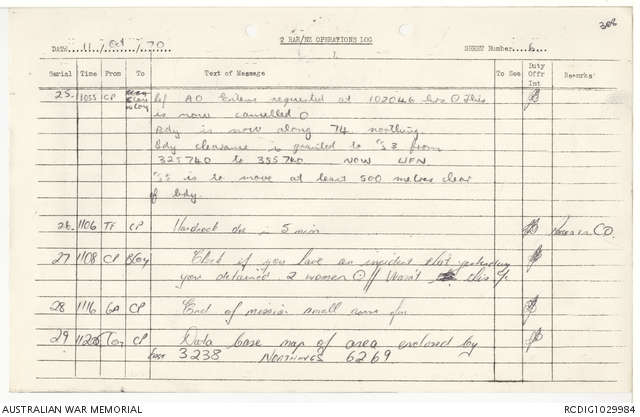 306
2 RAR/NZ OPERATIONS LOG
DATE 11 / Oct / 70 SHEET Number 6
Serial Time From To Text of Message To See Duty Offr Int Remarks
25 1055 CP AO Extens requested at 102046 hrs O This
is now cancelled O
Bdy is now along 74 northing
bdy clearance is granted to from
325740 to 355740 NOW UFN
is to move at least 500 metres clear
of bdy.
26 1106 CP Hardrock due in 5 min
27 1108 CP BCoy Check if you have an incident that yesterday
you detained 2 women O this
28 1116 CP End of mission small arms
29 CP Data base map of area enclosed by
3238 NORTHINGS 6269
AUSTRALIAN WAR MEMORIAL RCDIG1029984